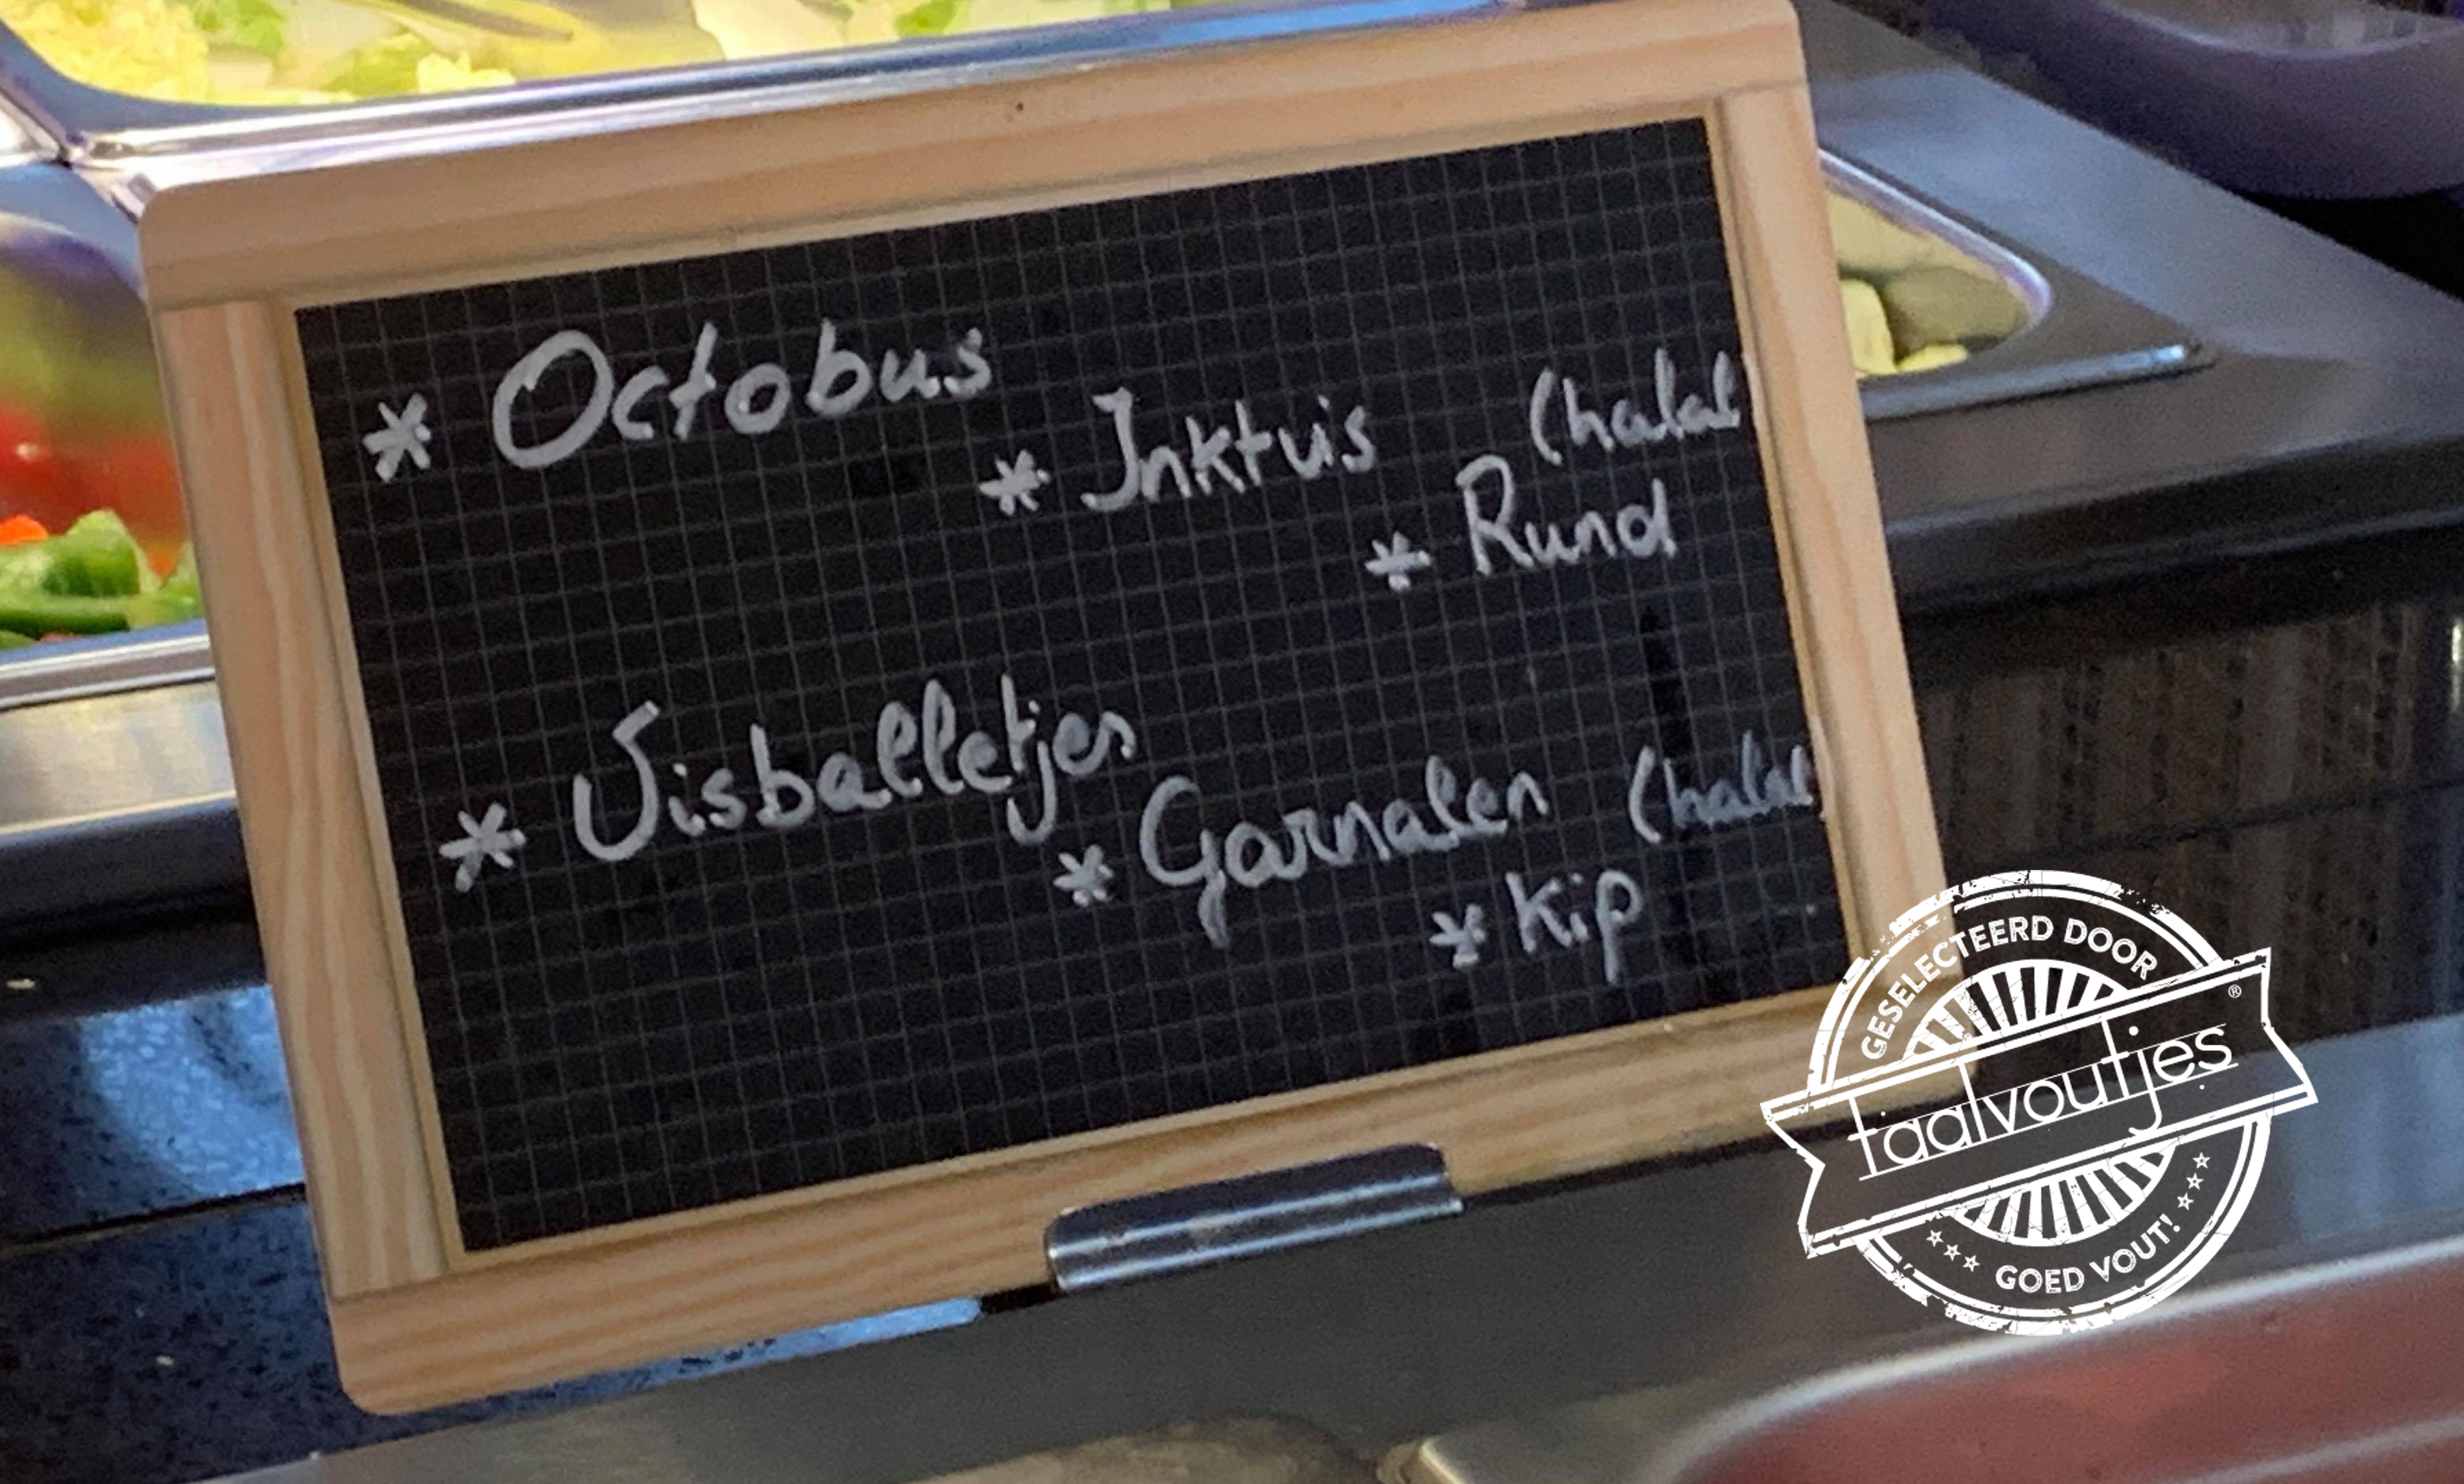 * Octobus
* Inktvis (halal
* Rund
* Visballetjes
* Garnalen (halal
* Kip
GESELECTEERD DOOR
taalvoutjes®
GOED VOUT!